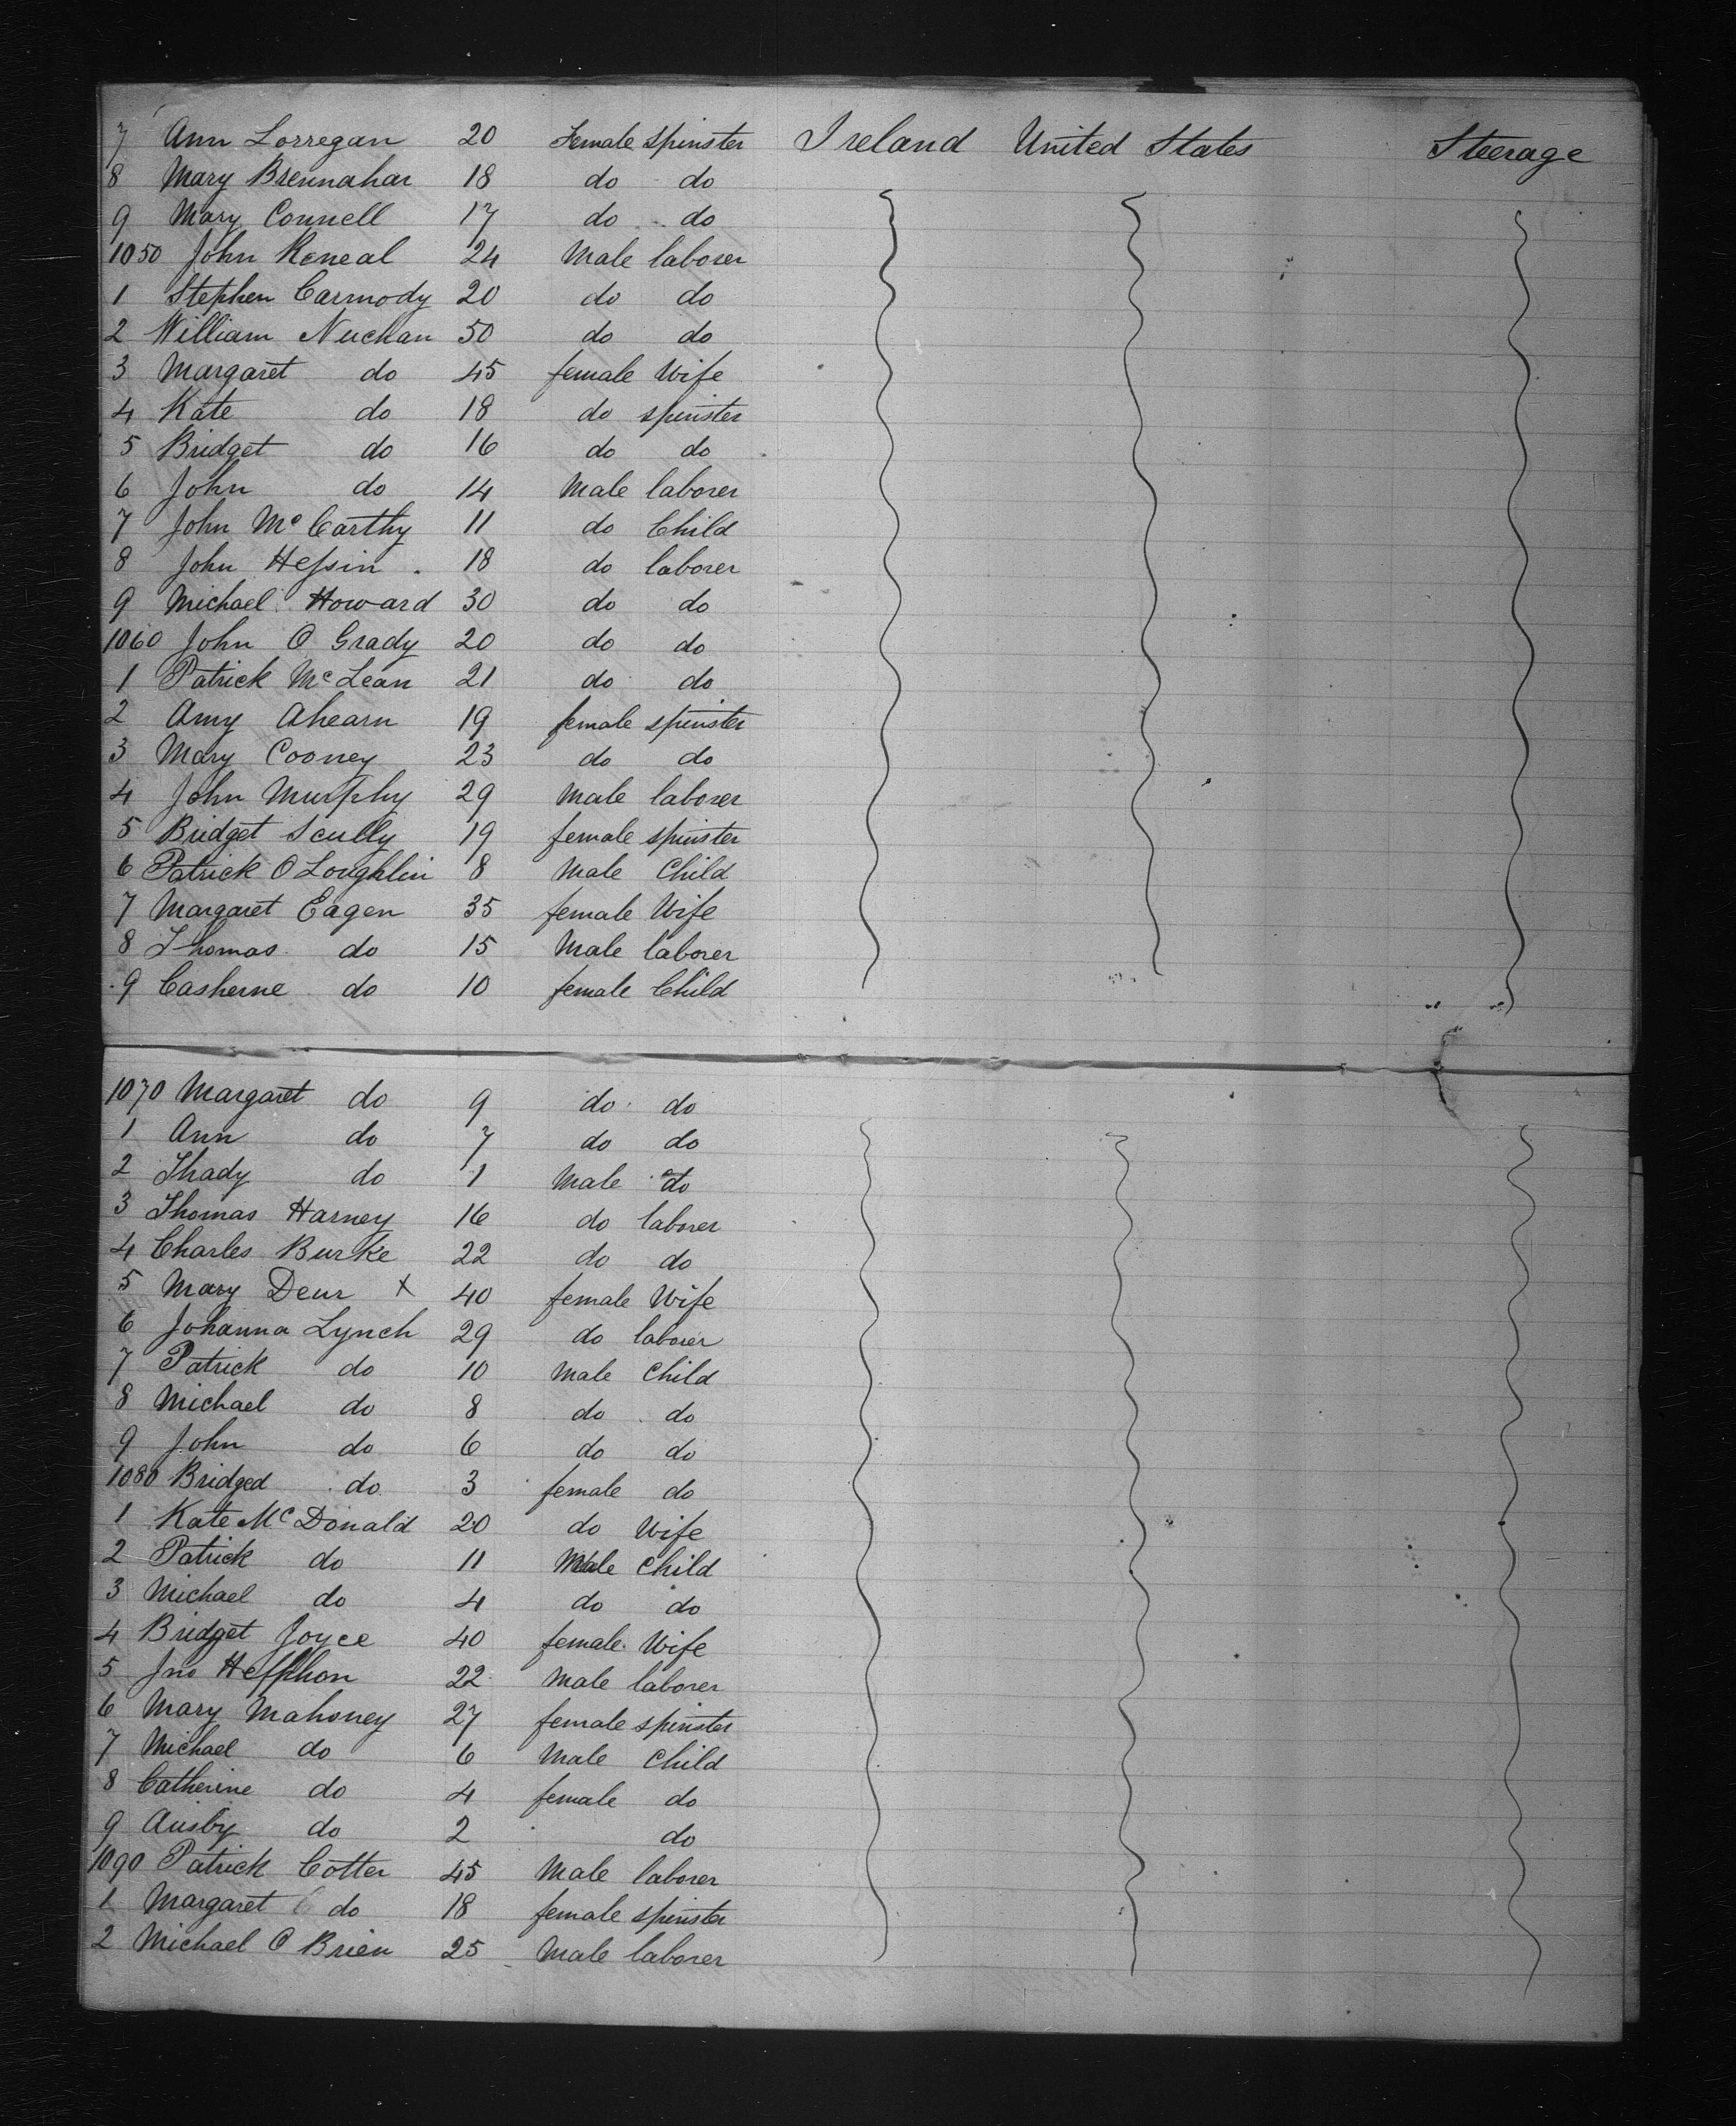 7 Ann Lorregan 20 Female spinster Ireland United States Steerage
8 Mary Brennahar 18 do do
9 Mary Connell 17 do do
1050 John Keneal 24 Male laborer
1 Stephen Carmody 20 do do
2 William Nuchan 50 do do
3 Margaret do 45 female Wife
4 Kate do 18 do spinster
5 Bridget do 16 do do
6 John do 14 Male laborer
7 John Mc Carthy 11 do Child
8 John Hessin 18 do laborer
9 Michael Howard 30 do do
1060 John O Grady 20 do do
1 Patrick Mc Lean 21 do do
2 Amy Ahearn 19 female spinster
3 Mary Cooney 23 do do
4 John Murphy 29 Male laborer
5 Bridget Scully 19 female spinster
6 Patrick O Loughlin 8 Male Child
7 Margaret Eagen 35 female Wife
8 Thomas do 15 Male laborer
9 Casherne do 10 female Child
1070 Margaret do 9 do do
1 Ann do 7 do do
2 Thady do 1 Male do
3 Thomas Harney 16 do laborer
4 Charles Burke 22 do do
5 Mary Deur X 40 female Wife
6 Johanna Lynch 29 do laborer
7 Patrick do 10 Male Child
8 Michael do 8 do do
9 John do 6 do do
1080 Bridged do 3 female do
1 Kate Mc Donald 20 do Wife
2 Patrick do 11 Male Child
3 Michael do 4 do do
4 Bridget Joyce 40 female Wife
5 Jno Heffhon 22 Male laborer
6 Mary Mahoney 27 female spinster
7 Michael do 6 Male Child
8 Catherine do 4 female do
9 Ausby do 2 do
1090 Patrick Cotter 45 Male laborer
1 Margaret do 18 female spinster
2 Michael O Brien 25 Male laborer